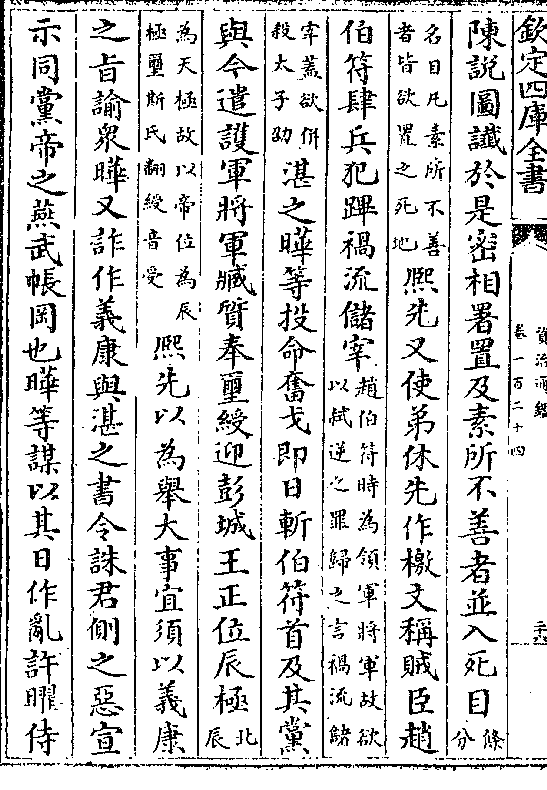 欽定四庫全書
資治通鑑
卷一百二十四
陳説圖讖於是密相署置及素所不善者並入死目條分
名目凡素所不善者皆欲置之死地熙先又使弟休先作檄文稱賊臣趙
伯符肆兵犯蹕禍流儲宰趙伯符時為領軍將軍故欲以弑逆之罪歸之言禍流儲
宰蓋欲併殺太子劭湛之曄等投命奮戈即日斬伯符首及其黨
與今遣護軍將軍臧質奉璽綬迎彭城王正位辰極北辰
為天極故以帝位為辰極璽斯氏翻綬音受熙先以為舉大事宜須以義康
之旨諭衆曄又詐作義康與湛之書令誅君側之惡宣
示同黨帝之燕武帳岡也曄等謀以其日作亂許曜侍